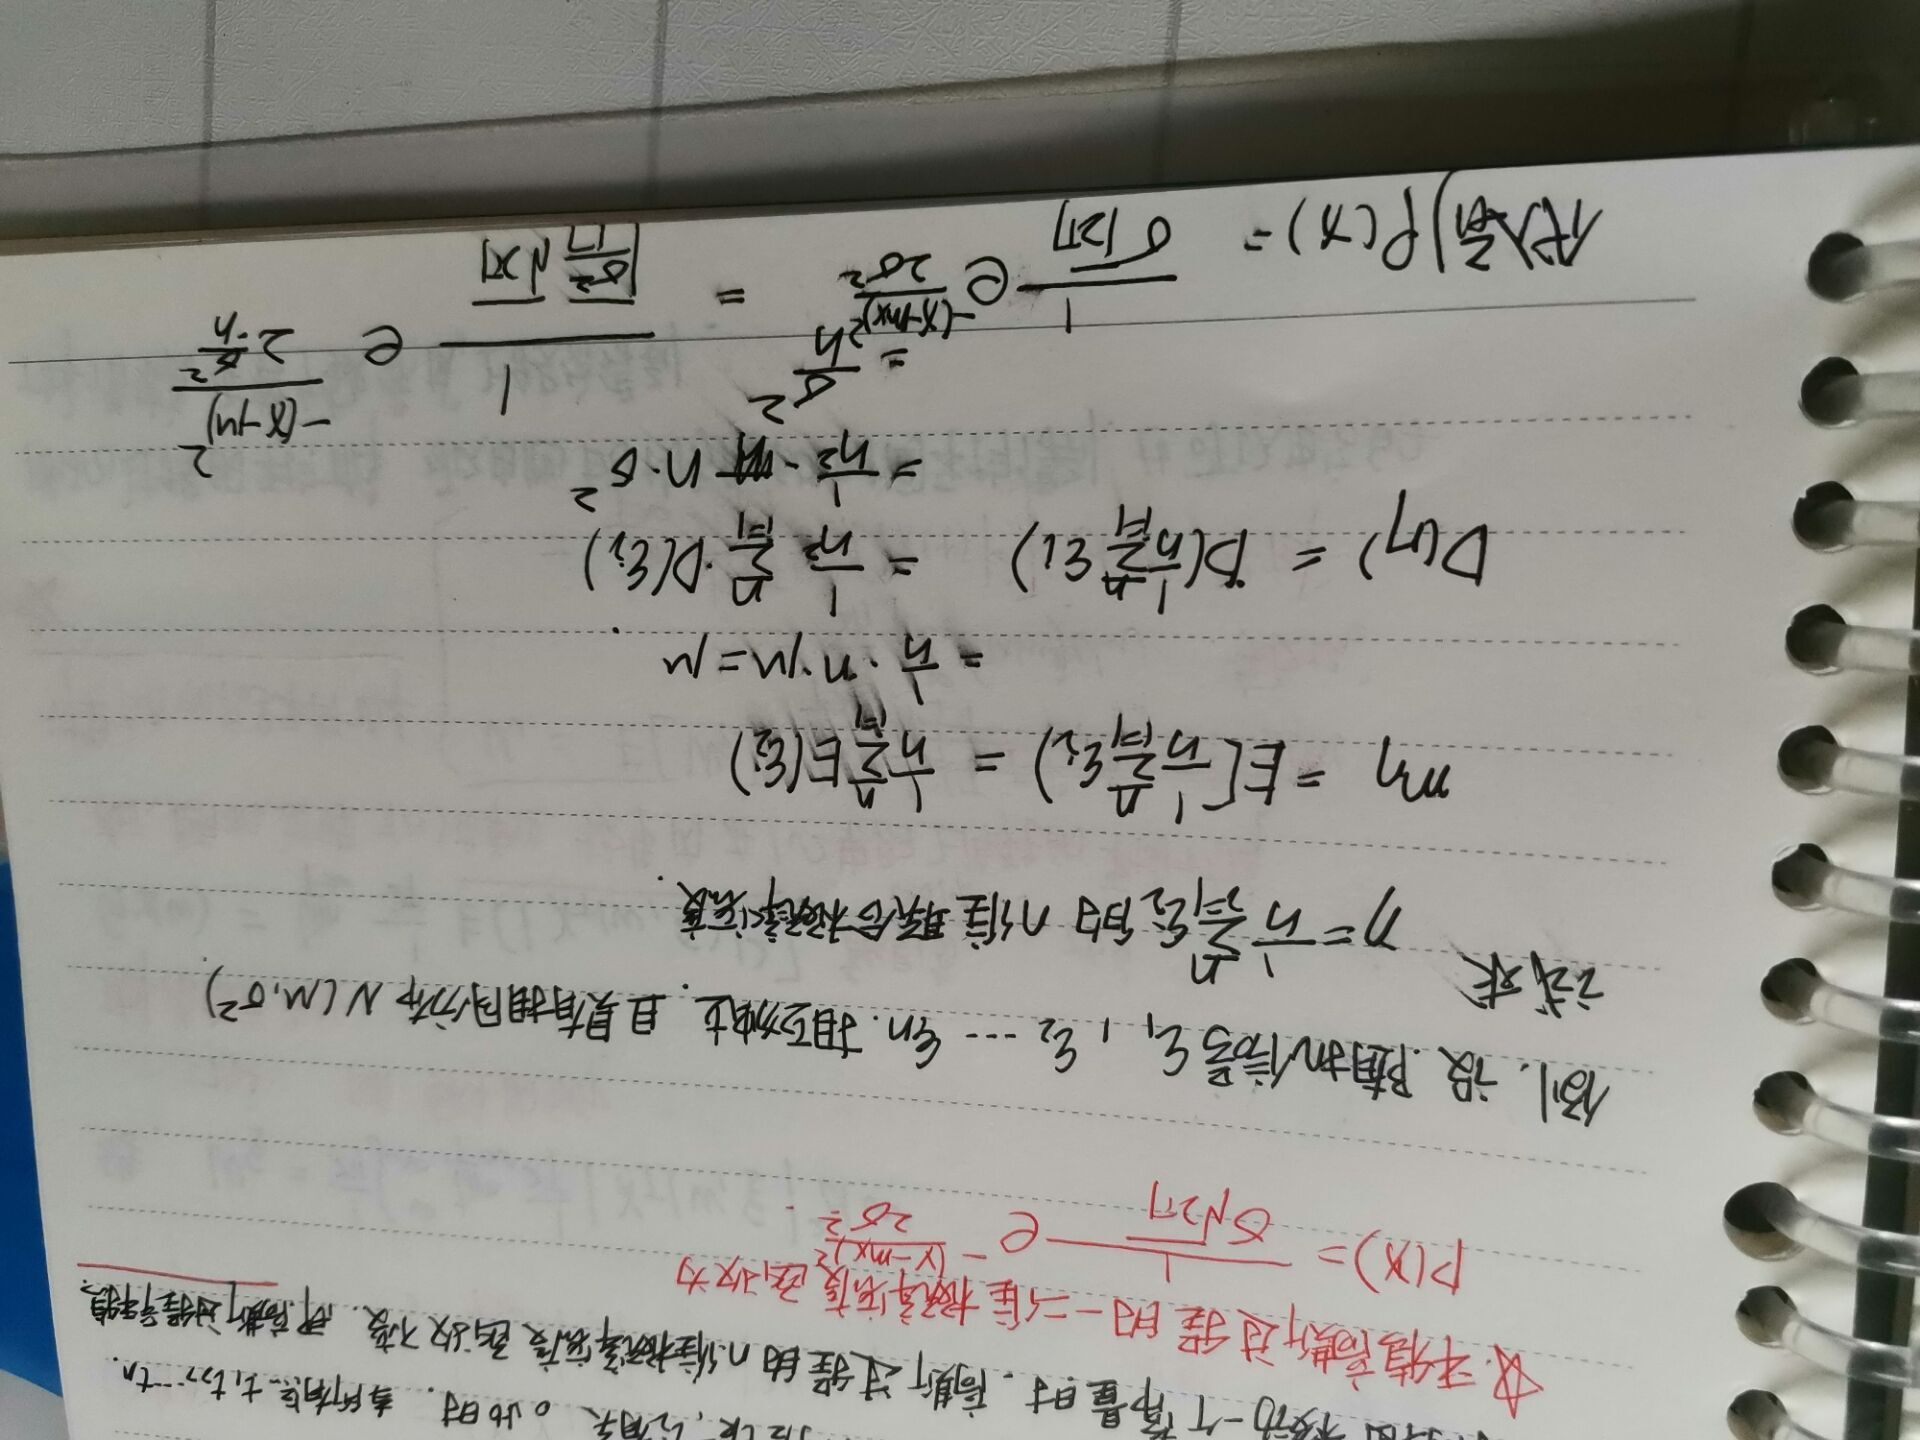 移动一个常量时.高斯过程的n维概率密度函数不变.即高斯过程平稳
有关。此时.当所有点t₁t₂,…tₙ.
☆.平稳高斯过程的一二维概率密度函数为
P(x)= \frac{1}{σ\sqrt{2π}} e^{-\frac{(x-mx)^2}{2σ^2}}.
例.设.随机信号ξ₁,ξ₂…ξn.相互独立.且具有相同分布N(μ,σ²).
试求 η=\frac{1}{n}\sum_{i=1}^{n}ξi的n维联合概率密度.
mη =E[\frac{1}{n}\sum_{i=1}^{n}ξi) = \frac{1}{n}\sum_{i=1}^{n}E(ξi)
=\frac{1}{n}·n·μ=μ.
D(η) = D(\frac{1}{n}\sum_{i=1}^{n}ξi) =\frac{1}{n^2}\sum_{i=1}^{n}·D(ξi)
=\frac{1}{n^2}·n·σ²
=\frac{σ^2}{n}
代入到P(x)= \frac{1}{σ\sqrt{2π}} e^{\frac{-(x-mx)^2}{2σ^2}} = \frac{1}{\sqrt{\frac{σ^2}{n}}\sqrt{2π}} e^{\frac{-(x-μ)^2}{2\frac{σ^2}{n}}}